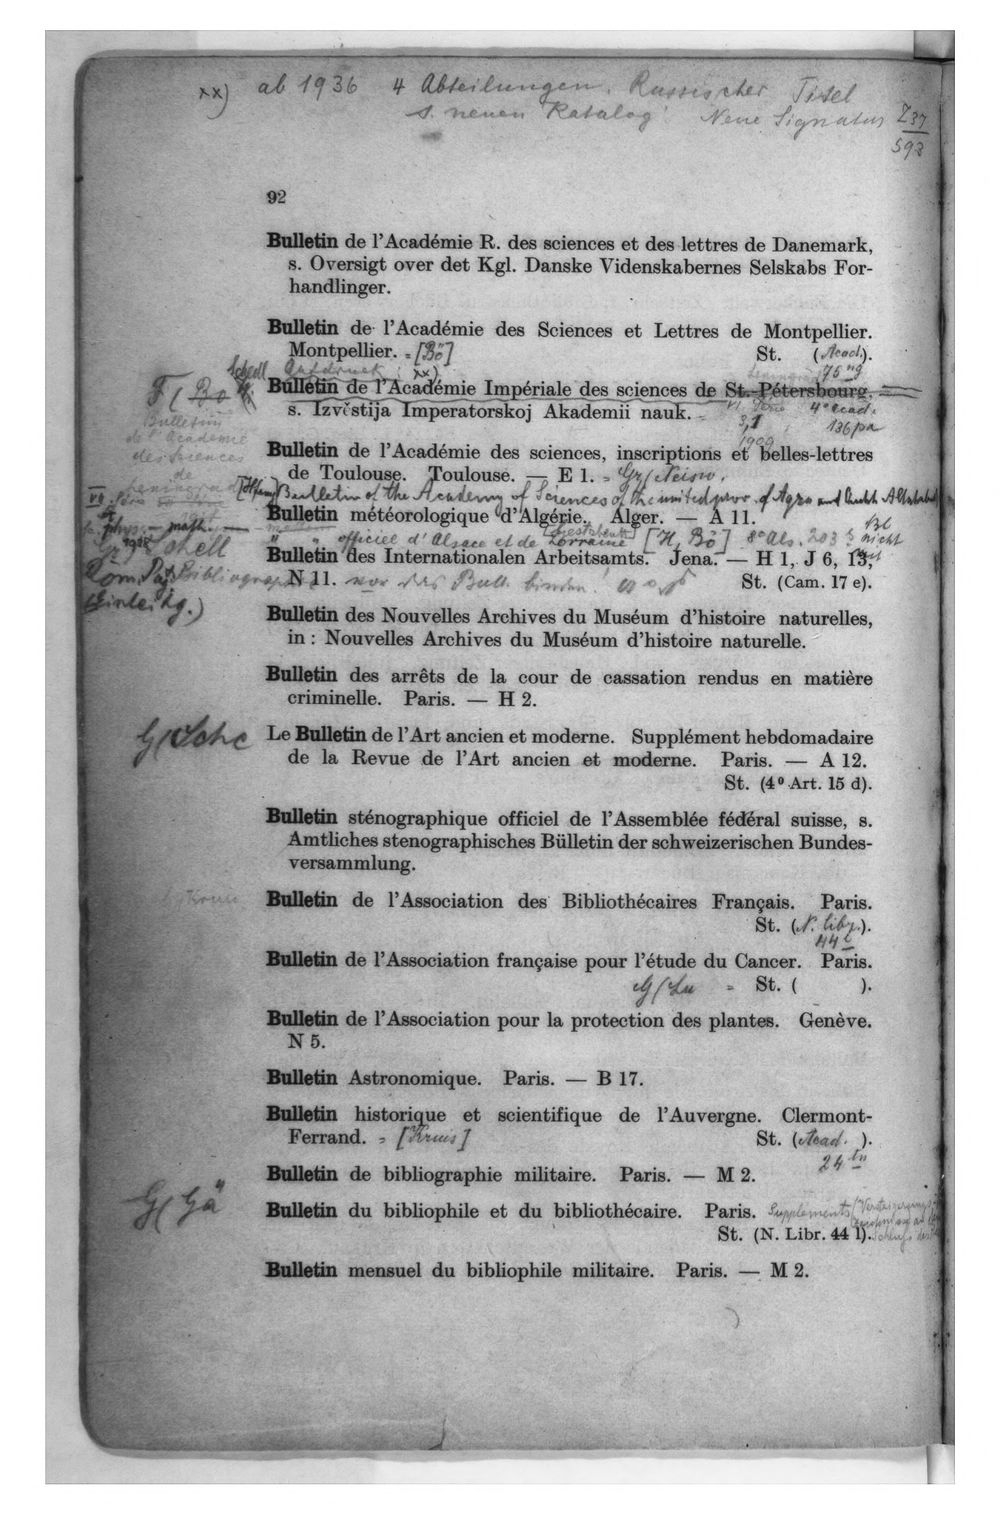 xx) ab 1936 4 Abteilungen. Russischer Titel
s. neuen Katalog! Neue Signatur Z 37
593
92
Bulletin de l'Académie R. des sciences et des lettres de Danemark,
s. Oversigt over det Kgl. Danske Videnskabernes Selskabs For-
handlinger.
Bulletin de l'Académie des Sciences et Lettres de Montpellier.
Montpellier. = [Bö] St. (Acad.).
75 ng
xx)
F ( Bo
Bulletin de l'Académie Impériale des sciences de St.-Pétersbourg.
s. Izvěstija Imperatorskoj Akademii nauk.
3,1 4° Acad.
1909 136 pa
Bulletin
de l'Académie
des Sciences
de
Bulletin de l'Académie des sciences, inscriptions et belles-lettres
de Toulouse. Toulouse. — E 1. = Gr ( Neisw.
Bulletin of the Academy of Sciences of the united prov. of Agra and Oudh Allahabad
Bulletin météorologique d'Algérie. Alger. — A 11.
" " officiel d'Alsace et de Lorraine [H, Bö] 8° Als. 203 nicht
Bulletin des Internationalen Arbeitsamts. Jena. — H 1, J 6, 13,
N 11. St. (Cam. 17 e).
Einleitg.)
Bulletin des Nouvelles Archives du Muséum d'histoire naturelles,
in: Nouvelles Archives du Muséum d'histoire naturelle.
Bulletin des arrêts de la cour de cassation rendus en matière
criminelle. Paris. — H 2.
G ( Sche
Le Bulletin de l'Art ancien et moderne. Supplément hebdomadaire
de la Revue de l'Art ancien et moderne. Paris. — A 12.
St. (4° Art. 15 d).
Bulletin sténographique officiel de l'Assemblée fédéral suisse, s.
Amtliches stenographisches Bülletin der schweizerischen Bundes-
versammlung.
Bulletin de l'Association des Bibliothécaires Français. Paris.
St. (N. libr.).
44 l
Bulletin de l'Association française pour l'étude du Cancer. Paris.
G ( Lu = St. ( ).
Bulletin de l'Association pour la protection des plantes. Genève.
N 5.
Bulletin Astronomique. Paris. — B 17.
Bulletin historique et scientifique de l'Auvergne. Clermont-
Ferrand. = [Kruis] St. (Acad. ).
24
Bulletin de bibliographie militaire. Paris. — M 2.
G ( Gä
Bulletin du bibliophile et du bibliothécaire. Paris. Supplements
St. (N. Libr. 44 l).
Bulletin mensuel du bibliophile militaire. Paris. — M 2.